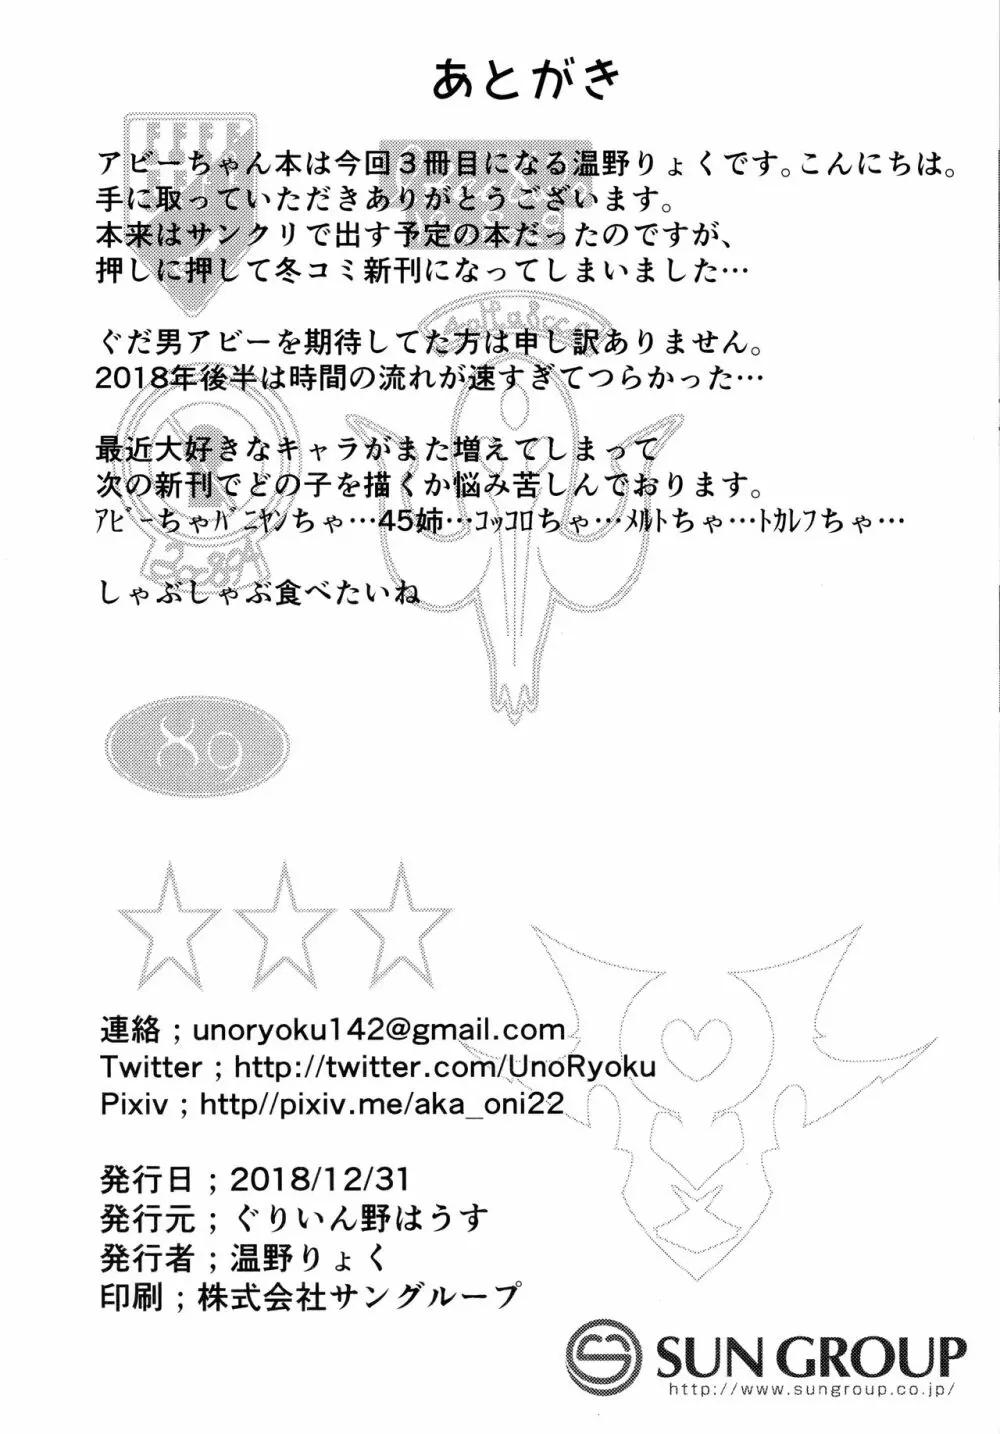 あとがき
アビーちゃん本は今回3冊目になる温野りょくです。こんにちは。
手に取っていただきありがとうございます。
本来はサンクリで出す予定の本だったのですが、
押しに押して冬コミ新刊になってしまいました…
ぐだ男アビーを期待してた方は申し訳ありません。
2018年後半は時間の流れが速すぎてつらかった…
最近大好きなキャラがまた増えてしまって
次の新刊でどの子を描くか悩み苦しんでおります。
ｱﾋﾞｰちゃﾊﾞﾆﾔﾝちゃ…45姉…ｺｯｺﾛちゃ…ﾒﾙﾄちゃ…ﾄｶﾚﾌちゃ…
しゃぶしゃぶ食べたいね
89
連絡；unoryoku142@gmail.com
Twitter；http://twitter.com/UnoRyoku
Pixiv；http//pixiv.me/aka_oni22
発行日；2018/12/31
発行元；ぐりいん野はうす
発行者；温野りょく
印刷；株式会社サングループ
SUN GROUP
http://www.sungroup.co.jp/